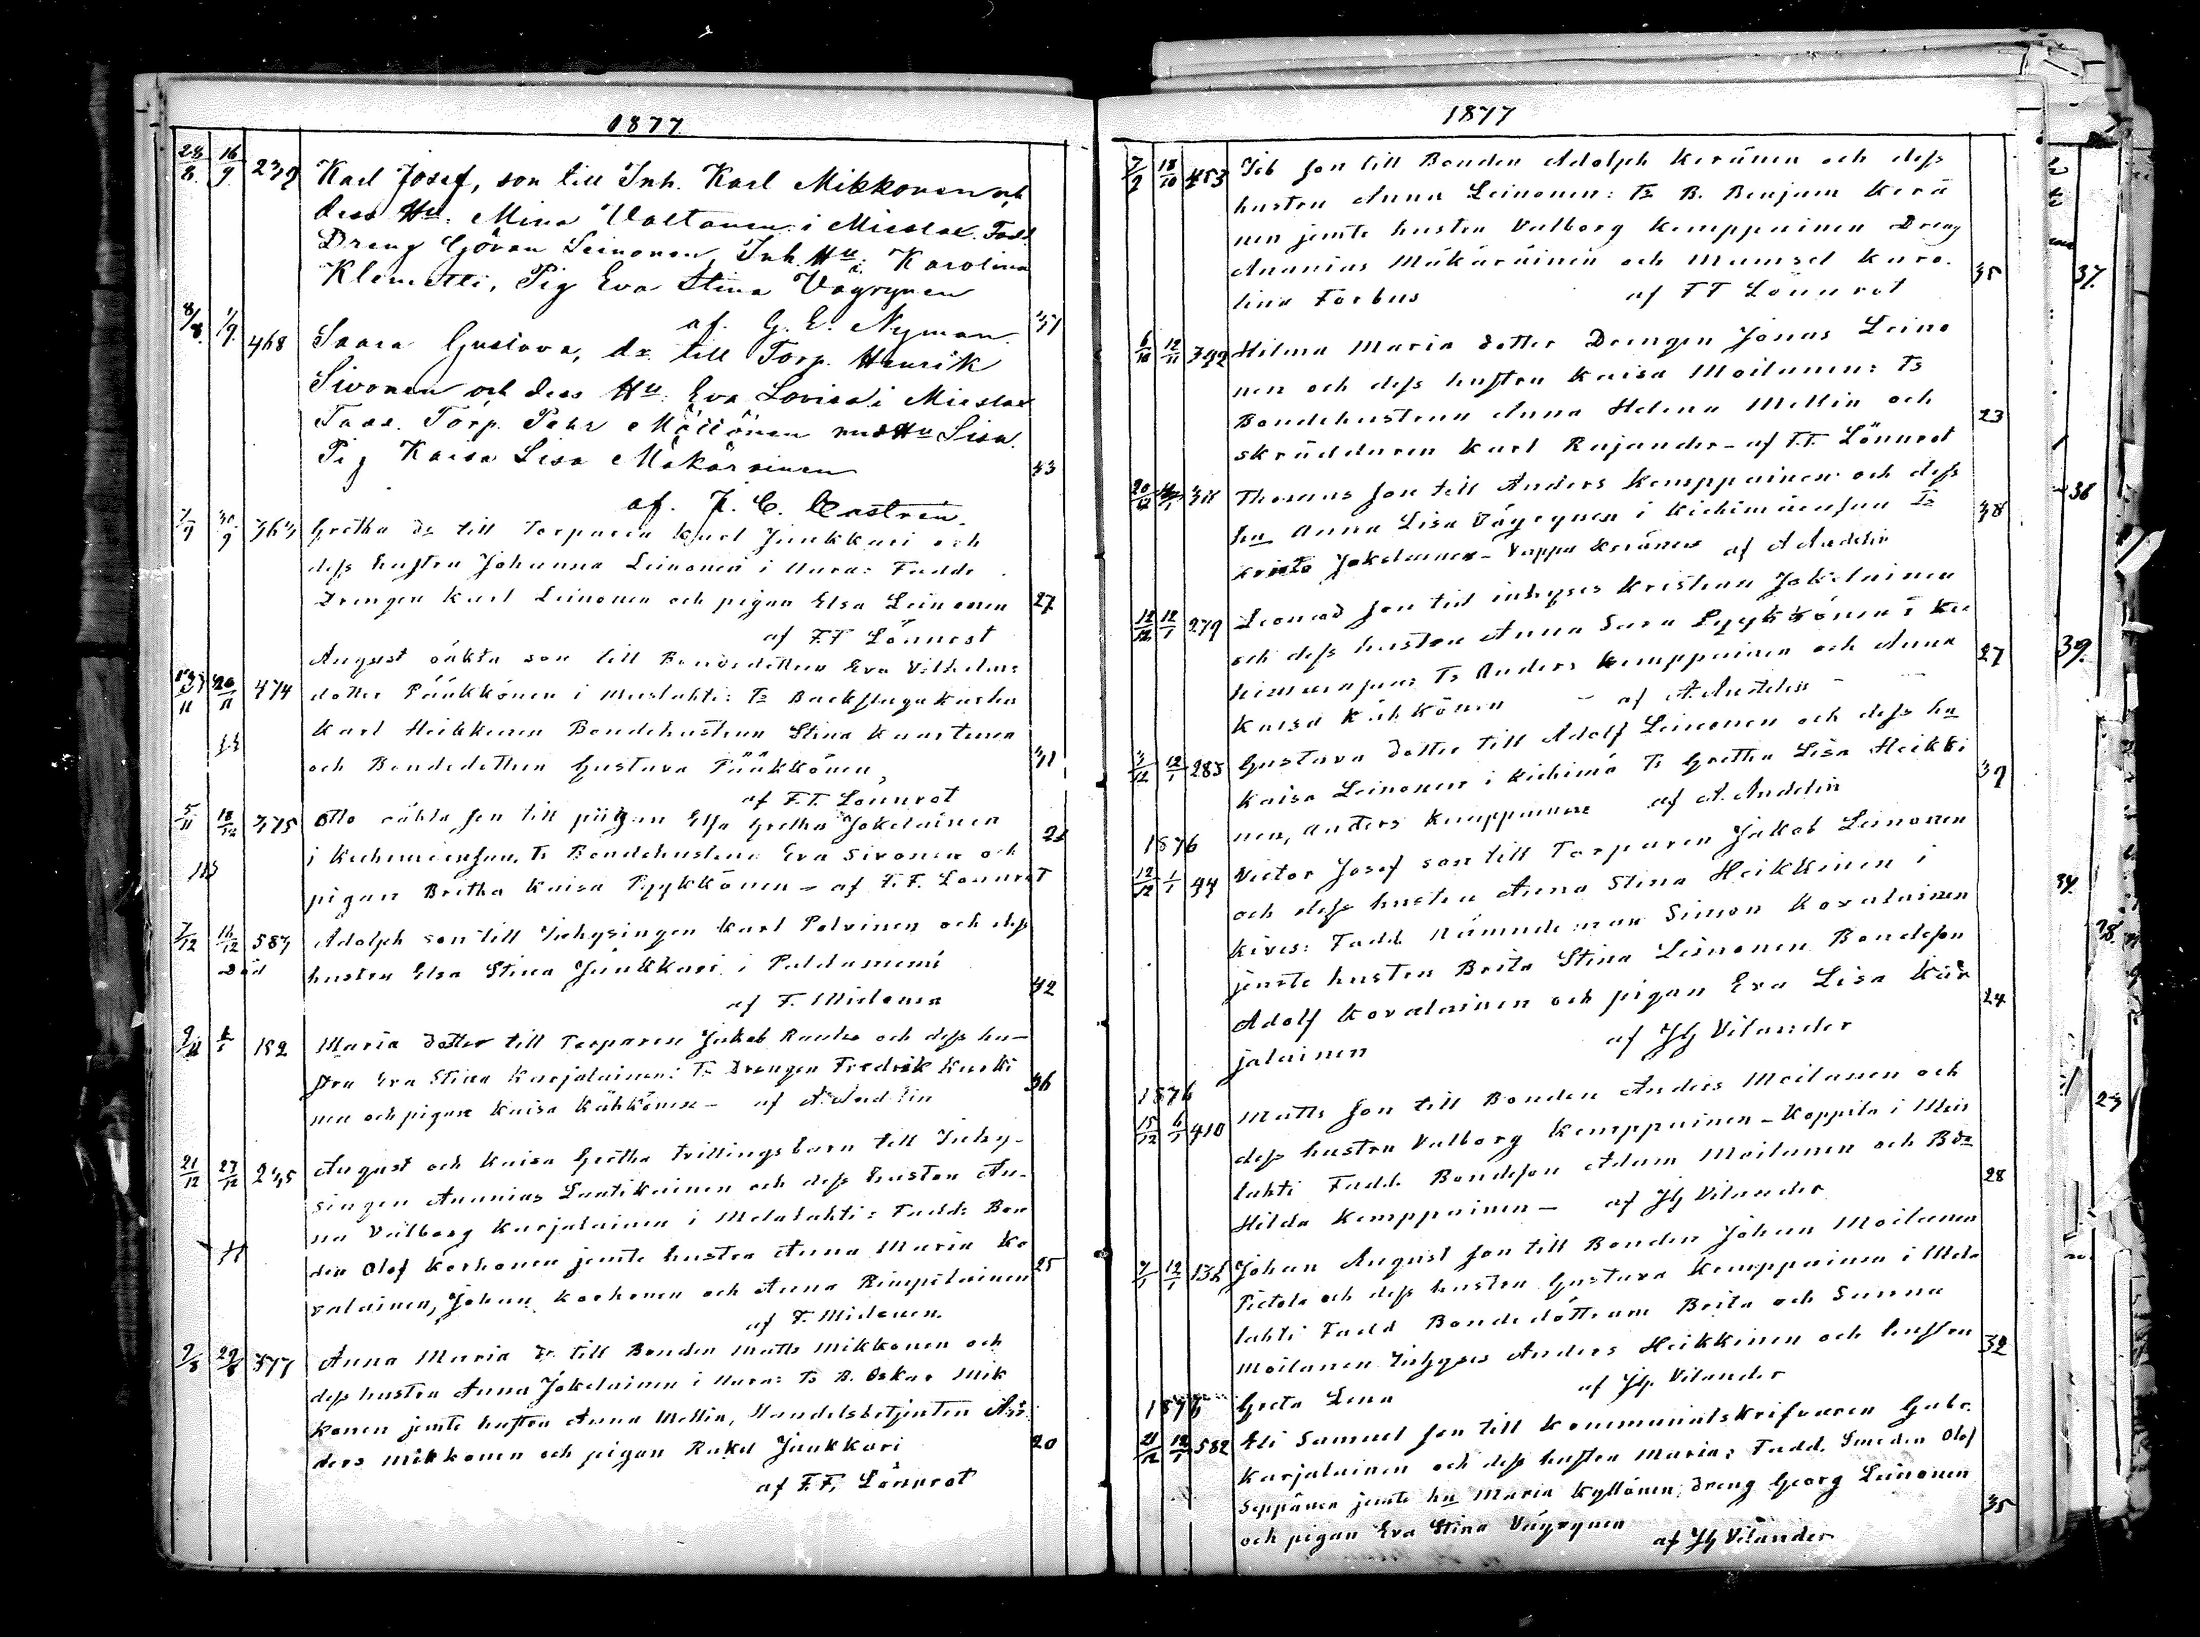 1877
28/8 16/9 239 Karl Josef, son till Inh. Karl Mikkonen och
dess Hu. Mina Valtanen i Mieslax. Fadd.
Dreng Göran Leinonen, Inh. Hu. Karolina
Klemetti, Pig Eva Stina Väyrynen
af. G. E. Nyman. 31
8/8. 1/9. 468 Saara Gustava, dr. till Torp. Henrik
Sivonen och dess Hu. Eva Lovisa i Mieslax
Torp. Petr Möttönen med Hu Lisa.
Pig Kaisa Lisa Mäkäräinen 33
af. J. C. Castrén.
1/9 30/9 363 Gretha dr till Torparen Karl Junkkari och
dess hustru Johanna Leinonen i Uura: Fadde
Drengen Karl Leinonen och pigan Elsa Leinonen 27
af F.F. Lönnrot
20/11 474 August oäkta son till Bondedottren Eva Vilhelms
dotter Pääkkönen i Mieslahti: Ts Backstugukarlen
Karl Heikkinen Bondehustrun Stina Kaartinen
och Bondedottren Gustava Pääkkönen, 31
af F.F. Lönnrot
5/11 18/12 375 Otto oäkta son till pigan Elsa Gretha Jokelainen 28
i Kiehimäensuu. Ts Bondehustrun Eva Sivonen och
pigan Britha Kaisa Pyykkönen - af F.F. Lönnrot
7/12 16/12 587 Adolph son till Inhysingen Karl Polvinen och dess
Död hustru Elsa Stina Junkkari i Paldaniemi 42
af F. Midenen
192 Maria dotter till Torparen Jakob Rautio och dess hu-
stru Eva Stina Karjalainen: Ts Drengen Fredrik Huski 36
nen och pigan Kaisa Kähkönen - af A. Andelin
21/12 27/12 245 August och Kaisa Gretha tvillingsbarn till Inhy-
singen Ananias Lautikainen och dess hustru An-
na Valborg Karjalainen i Melalahti: Fadd: Bon
den Olof Korhonen jemte hustru Anna Maria Ko 25
valainen, Johan Korhonen och Anna Rimpilainen
af F. Midenen.
9/8 29/8 377 Anna Maria dr. till Bonden Matts Mikkonen och
dess hustru Anna Jokelainen i Uura: Ts B. Oskar Mik
konen jemte hustru Anna Mellin, Handelsbetjenten
ders Mikkonen och pigan Rakel Junkkari 20
af F.F. Lönnrot
1877
7/9 18/10 453 Job son till Bonden Adolph Keränen och dess
hustru Anna Leinonen: Ts B. Benjam Kerä
nen jemte hustru Valborg Kemppainen Dreng
Ananias Mäkäräinen och Mamsel Karo- 35
lina Forbus af F F Lönnrot
6/10 12/11 392 Hilma Maria dotter Drengen Jonas Leino
nen och dess hustru Kaisa Moilanen: Ts
Bondehustrun Anna Helena Mellin och 23
skräddaren Karl Rajander - af F.F. Lönnrot
20/12 Thomas son till Anders Kemppainen och dess
hu Anna Lisa Väyrynen i Kiehimäensuu Ts 38
Jokelainen - Vappu Keränen af A Andelin
12/12 12/1 279 Leonard son till inhyses Kristian Jokelainen
och dess hustru Anna Sara Pyykkönen i Kie
himäensuu: Ts Anders Kemppainen och Anna 27
Kaisa Kähkönen - af A. Andelin -
3/12 12/1 285 Gustava dotter till Adolf Leinonen och dess hu
Kaisa Leinonen i Kiehimä Ts Gretha Lisa Heikki 37
nen, Anders Kemppainen af A. Andelin
1876
12/12 1/1 44 Victor Josef son till Torparen Jakob Leinonen
och dess hustru Anna Stina Heikkinen i
Kives: Fadd. Nämndeman Simon Kovalainen
jemte hustru Brita Stina Leinonen Bondeson
Adolf Kovalainen och pigan Eva Lisa Kar 24
jalainen af JH Vilander
1876
15/12 6/1 410 Matts son till Bonden Anders Moilanen och
dess hustru Valborg Kemppainen - Koppila i Mies
lahti Fadd. Bondeson Adam Moilanen och Bdr 28
Hilda Kemppainen - af JH Vilander
7/1 12/1 132 Johan August son till Bonden Johan Moilanen
Pietola och dess hustru Gustava Kemppainen i Mela
lahti Fadd Bondedöttrarna Brita och Sanna
Moilanen Inhyses Anders Heikkinen och hustru 32
Greta Lena af JH. Vilander
1876
21/12 12/1 582 Eli Samuel son till Kommunalskrifvaren Gabr.
Karjalainen och dess hustru Maria: Fadd. Smeden Olof
Seppänen jemte hu Maria Kyllönen, dreng Georg Leinonen 35
och pigan Eva Stina Väyrynen af JH Vilander
37.
38
39.
34.
28.
23